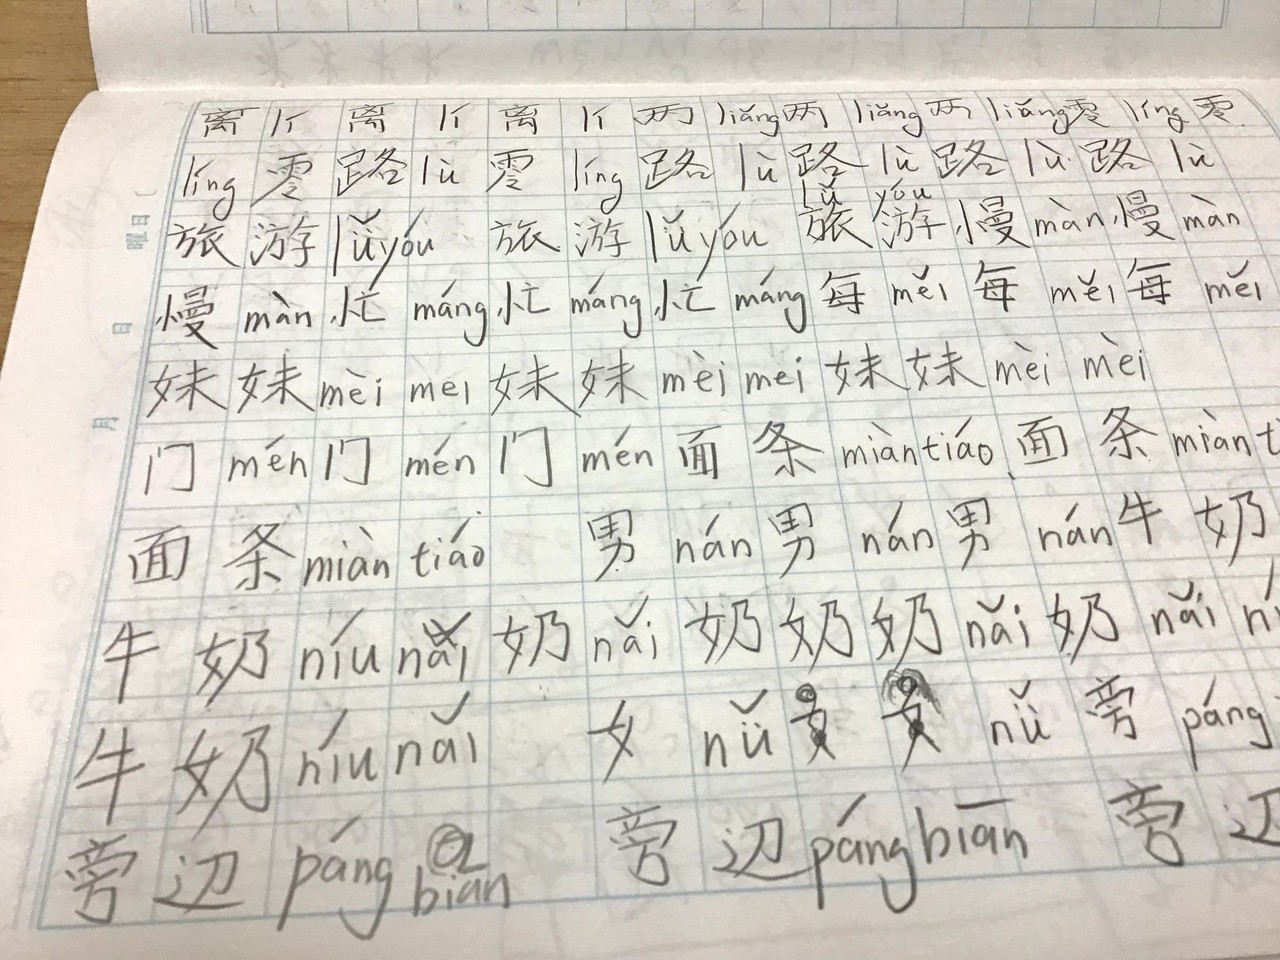 离 lí 离 lí 离 lí 两 liǎng 两 liǎng 两 liǎng 零 líng 零
líng 零 路 lù 零 líng 路 lù 路 lù 路 lù 路 lù
lǚ yóu
旅 游 lǚyóu 旅 游 lǚyóu 旅 游 慢 màn 慢 màn
慢 màn 忙 máng 忙 máng 忙 máng 每 měi 每 měi 每 měi
妹 妹 mèi mei 妹 妹 mèi mei 妹 妹 mèi mèi
门 mén 门 mén 门 mén 面 条 miàntiáo 面 条 miànt
面 条 miàn tiáo 男 nán 男 nán 男 nán 牛 奶
牛 奶 níu nǎi 奶 nǎi 奶 奶 奶 nǎi 奶 nǎi ní
牛 奶 níu nǎi 女 nǚ 女 女 nǚ 旁 páng
旁 边 páng bian 旁 边 páng biān 旁 边
曜日
日
月